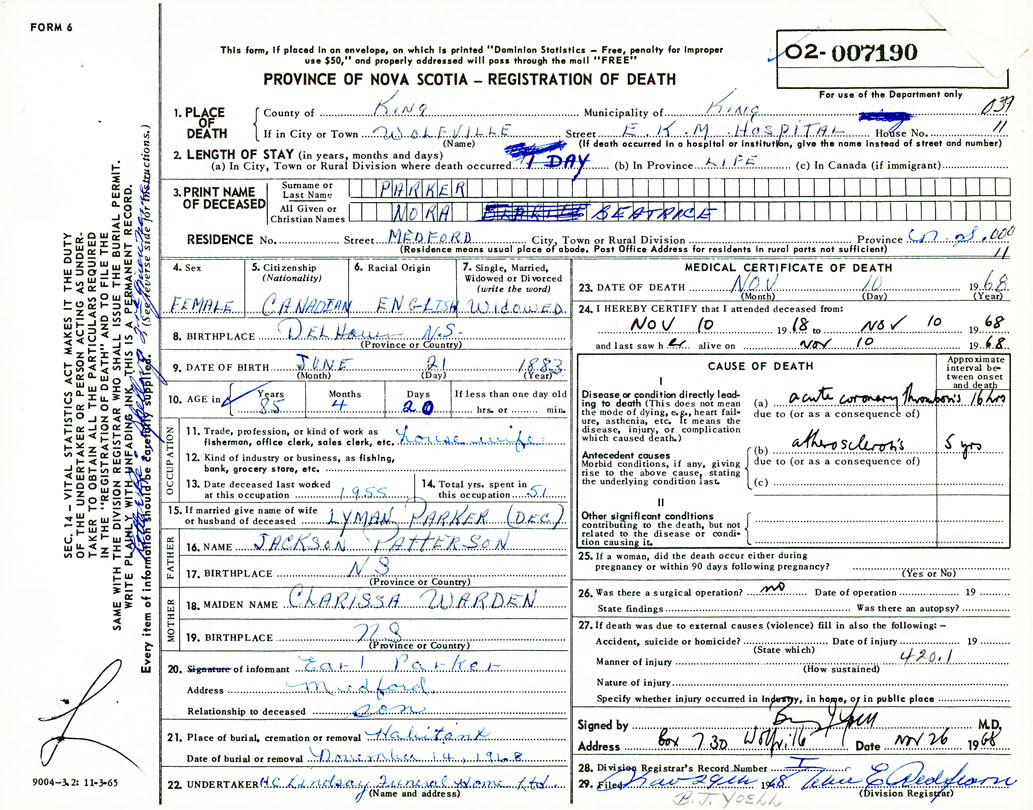 FORM 6
This form, if placed in an envelope, on which is printed "Dominion Statistics – Free, penalty for improper
use $50," and properly addressed will pass through the mail "FREE"
PROVINCE OF NOVA SCOTIA – REGISTRATION OF DEATH
02-007190
For use of the Department only
039
11
1. PLACE OF DEATH
County of King Municipality of King
If in City or Town WOLFVILLE Street E.K.M. HOSPITAL House No.
(Name) (If death occurred in a hospital or institution, give the name instead of street and number)
2. LENGTH OF STAY (in years, months and days)
(a) In City, Town or Rural Division where death occurred 1 DAY (b) In Province LIFE (c) In Canada (if immigrant)
3. PRINT NAME OF DECEASED
Surname or Last Name PARKER
All Given or Christian Names NORA BEATRICE
RESIDENCE No. Street MEDFORD City, Town or Rural Division Province N.S. 000
(Residence means usual place of abode. Post Office Address for residents in rural parts not sufficient) 11
4. Sex FEMALE
5. Citizenship (Nationality) CANADIAN
6. Racial Origin ENGLISH
7. Single, Married, Widowed or Divorced (write the word) WIDOWED
8. BIRTHPLACE N.S.
(Province or Country)
9. DATE OF BIRTH JUNE 21 1883
(Month) (Day) (Year)
10. AGE in Years 85 Months 4 Days 20 If less than one day old hrs. or min.
OCCUPATION
11. Trade, profession, or kind of work as
fisherman, office clerk, sales clerk, etc. house wife
12. Kind of industry or business, as fishing,
bank, grocery store, etc.
13. Date deceased last worked
at this occupation 1955
14. Total yrs. spent in
this occupation 51
15. If married give name of wife
or husband of deceased LYMAN PARKER (DEC.)
FATHER
16. NAME JACKSON PATTERSON
17. BIRTHPLACE NS
(Province or Country)
MOTHER
18. MAIDEN NAME CLARISSA WARDEN
19. BIRTHPLACE NS
(Province or Country)
20. Signature of informant Earl Parker
Address Medford
Relationship to deceased son
21. Place of burial, cremation or removal Habitant
Date of burial or removal November 14, 1968
22. UNDERTAKER HC Lindsay Funeral Home Ltd.
(Name and address)
MEDICAL CERTIFICATE OF DEATH
23. DATE OF DEATH NOV 10 1968
(Month) (Day) (Year)
24. I HEREBY CERTIFY that I attended deceased from:
NOV 10 1968 to NOV 10 1968
and last saw her alive on Nov 10 1968
CAUSE OF DEATH
Approximate interval between onset and death
I
Disease or condition directly leading to death (This does not mean
the mode of dying, e.g., heart failure, asthenia, etc. It means the
disease, injury, or complication
which caused death.)
(a) acute coronary thrombosis 16 hrs
due to (or as a consequence of)
Antecedent causes
Morbid conditions, if any, giving
rise to the above cause, stating
the underlying condition last.
(b) atherosclerosis 5 yrs
due to (or as a consequence of)
(c)
II
Other significant conditions
contributing to the death, but not
related to the disease or condition causing it.
25. If a woman, did the death occur either during
pregnancy or within 90 days following pregnancy?
(Yes or No)
26. Was there a surgical operation? no Date of operation 19
State findings Was there an autopsy?
27. If death was due to external causes (violence) fill in also the following: –
Accident, suicide or homicide? Date of injury 19
(State which) 420.1
Manner of injury
(How sustained)
Nature of injury
Specify whether injury occurred in Industry, in home, or in public place
Signed by M.D.
Address Box 730 Wolfville Date Nov 26 1968
28. Division Registrar's Record Number I
29. Filed Nov 29th 1968
(Division Registrar)
B. J. YOELL
SEC. 14 – VITAL STATISTICS ACT MAKES IT THE DUTY
OF THE UNDERTAKER OR PERSON ACTING AS UNDER-
TAKER TO OBTAIN ALL THE PARTICULARS REQUIRED
IN THE "REGISTRATION OF DEATH" AND TO FILE THE
SAME WITH THE DIVISION REGISTRAR WHO SHALL ISSUE THE BURIAL PERMIT.
WRITE PLAINLY WITH UNFADING INK. THIS IS A PERMANENT RECORD.
Every item of information should be carefully supplied. (See reverse side for instructions.)
9004-3.2: 11-3-65